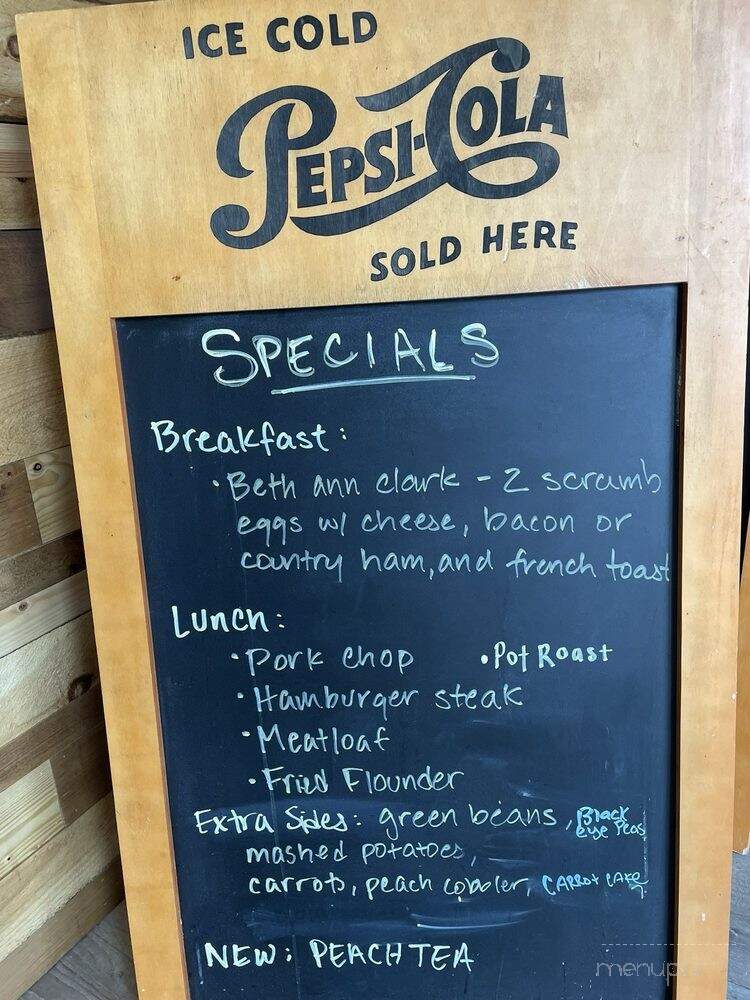 ICE COLD
PEPSI-COLA
SOLD HERE
SPECIALS
Breakfast:
• Beth ann clark - 2 scramb
eggs w/ cheese, bacon or
country ham, and french toast
Lunch:
• Pork chop • Pot Roast
• Hamburger steak
• Meatloaf
• Fried Flounder
Extra Sides: green beans, Black eye Peas
mashed potatoes,
carrots, peach cobbler, CARROT CAKE
NEW: PEACH TEA